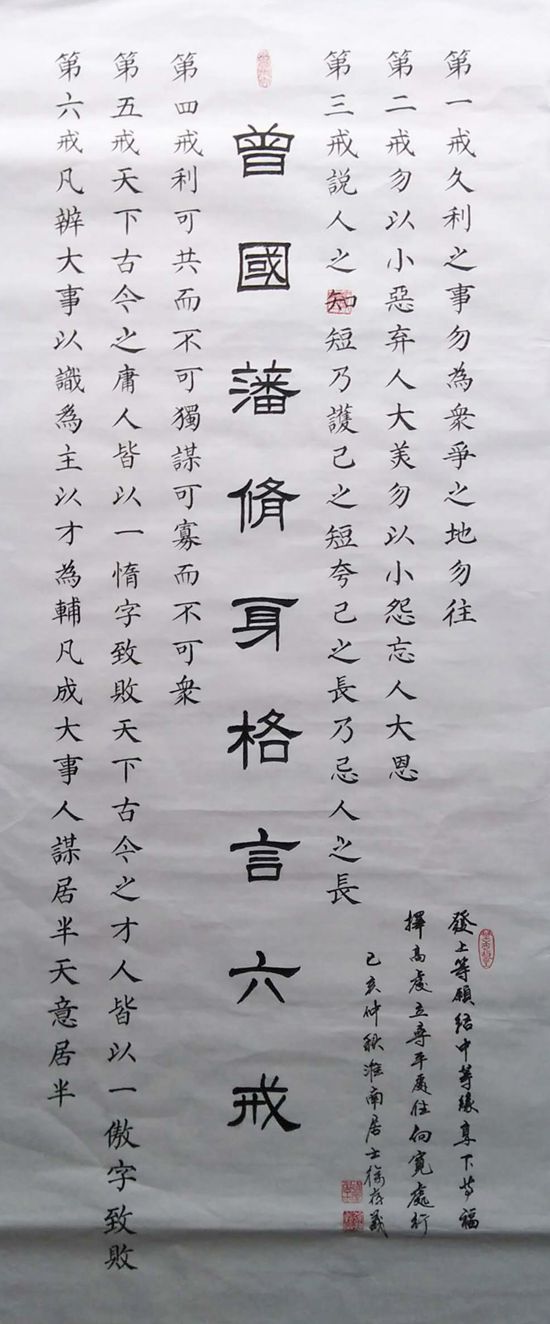 第一戒久利之事勿為衆爭之地勿往
第二戒勿以小惡弃人大美勿以小怨忘人大恩
第三戒説人之知短乃護己之短夸己之長乃忌人之長
曾國藩脩身格言六戒
第四戒利可共而不可獨謀可寡而不可衆
第五戒天下古今之庸人皆以一惰字致敗天下古今之才人皆以一傲字致敗
第六戒凡辦大事以識爲主以才為輔凡成大事人謀居半天意居半
發上等願結中等緣享下等福
擇高處立尋平處住向寬處行
己亥仲秋淮南居士徐存義